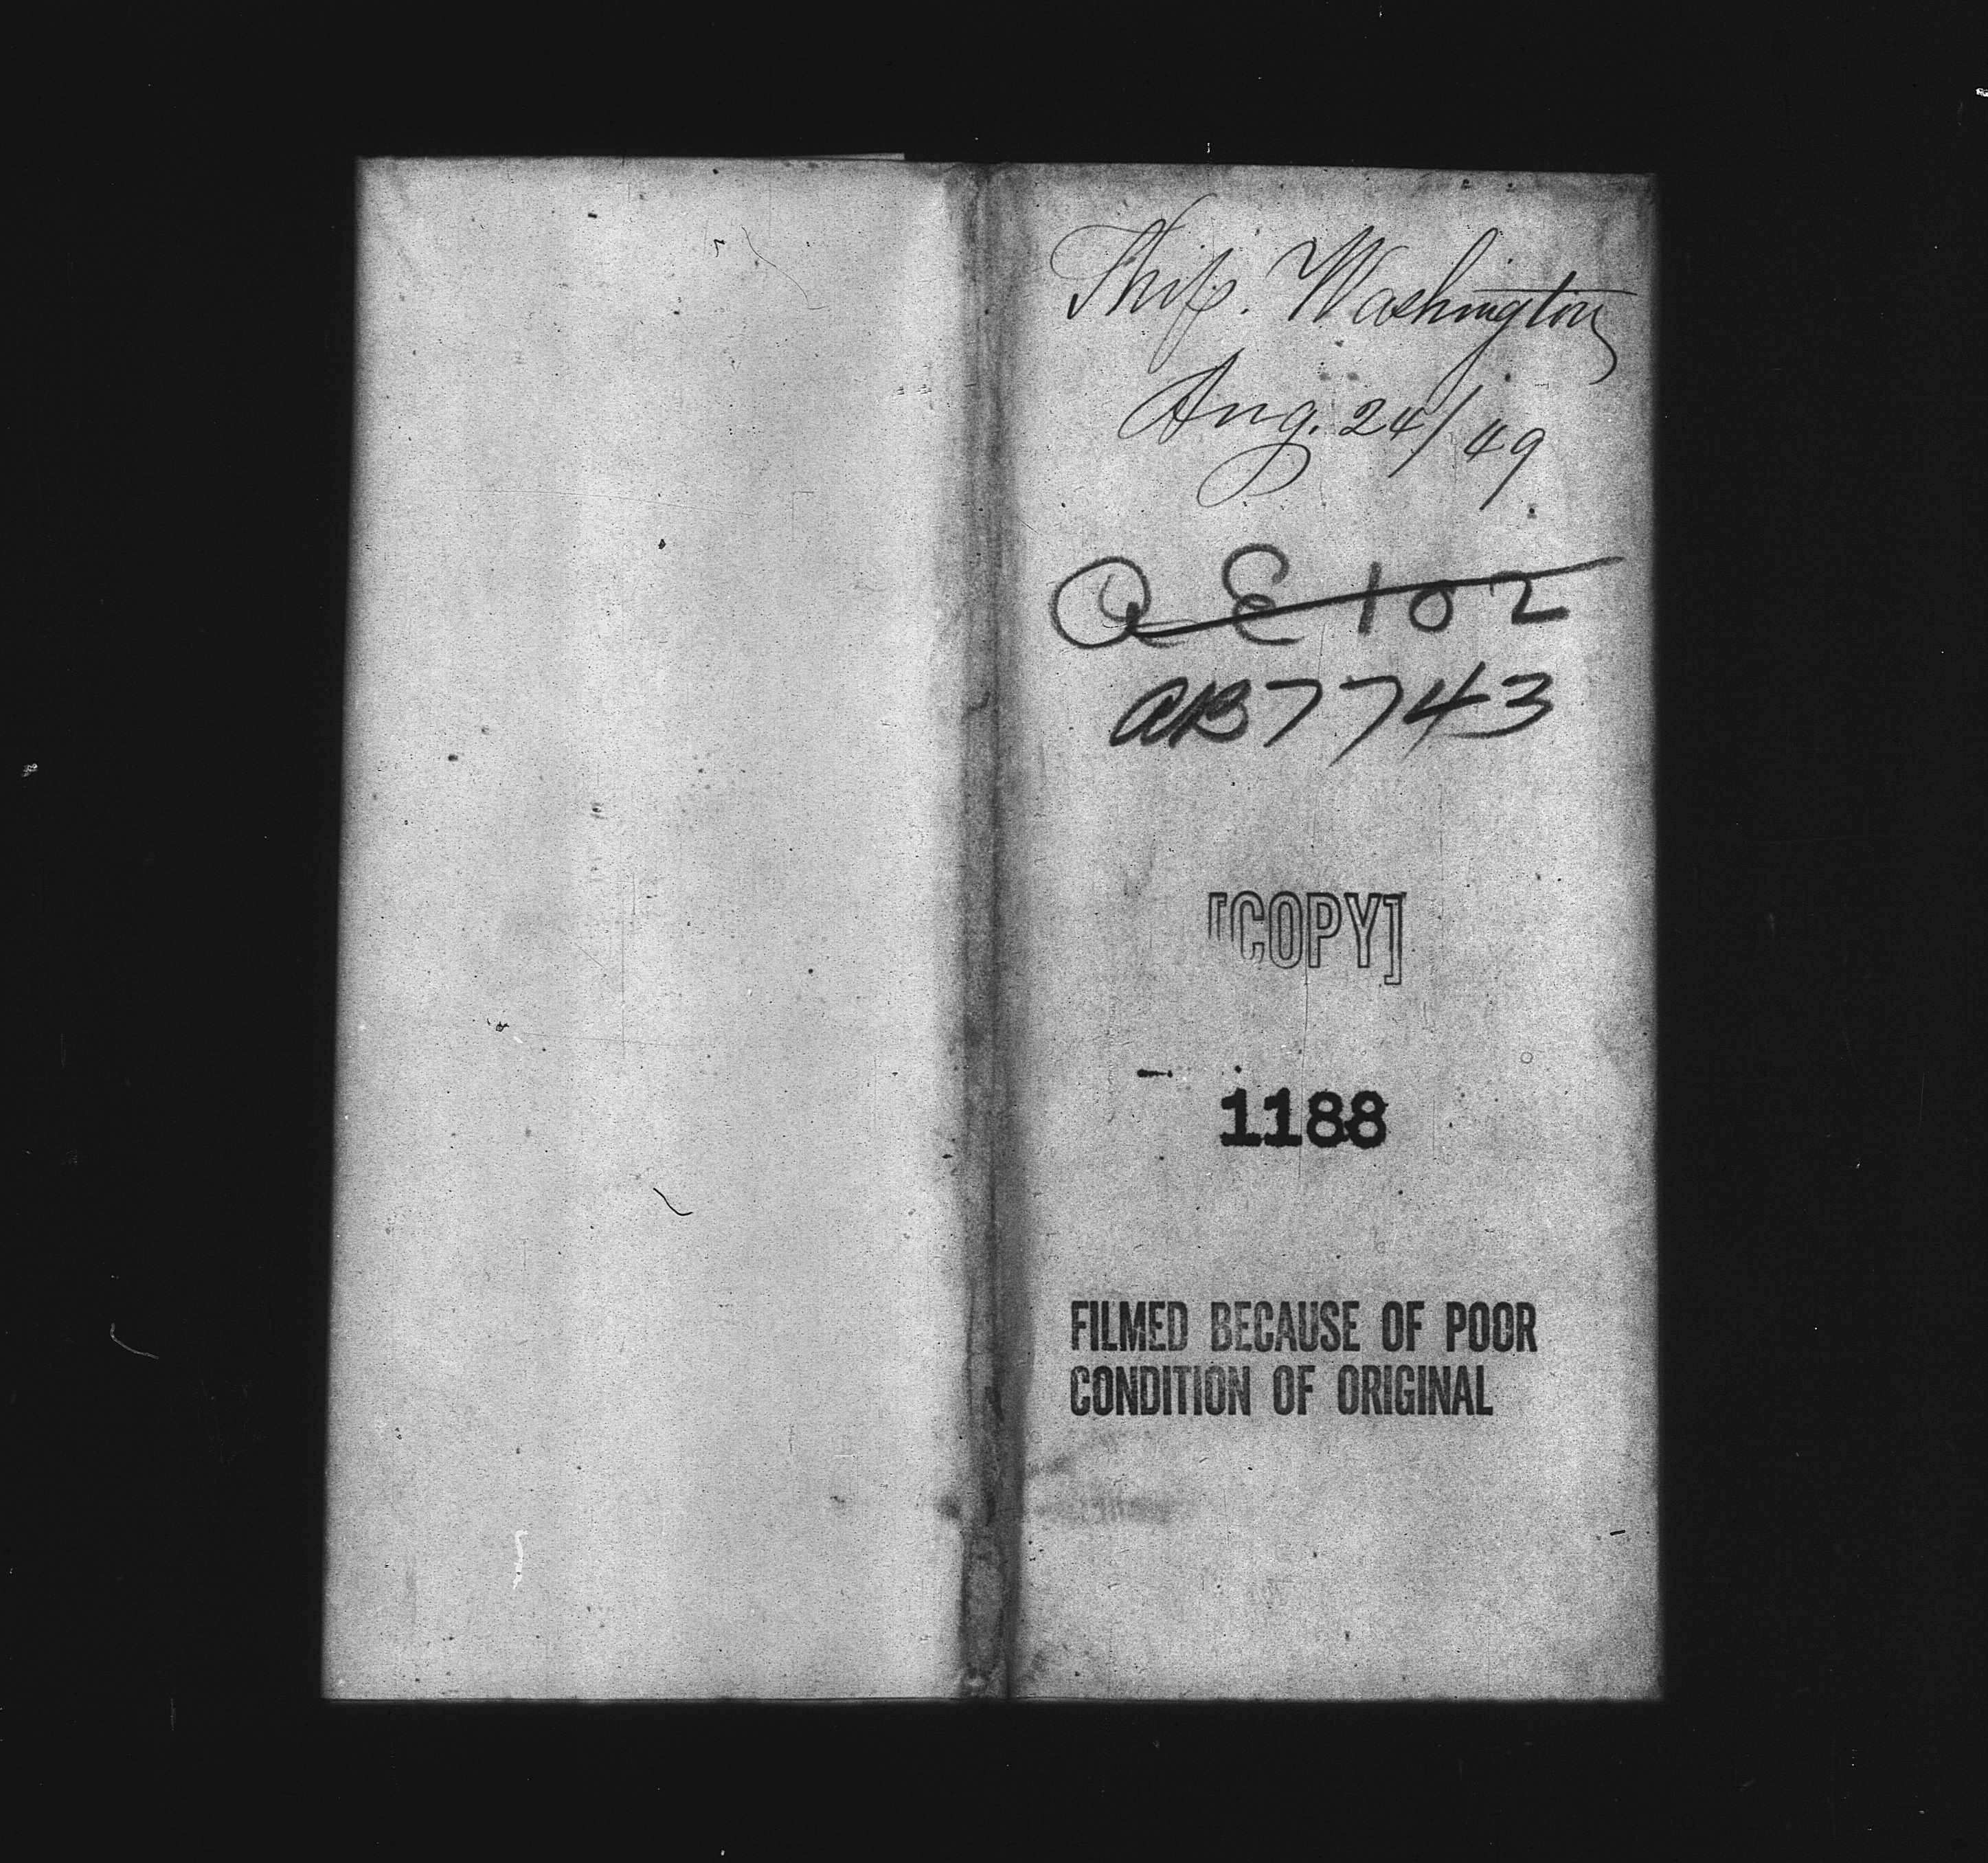 Ship. Washington
Aug. 24/49
AE 102
AB7743
[COPY]
1188
FILMED BECAUSE OF POOR
CONDITION OF ORIGINAL